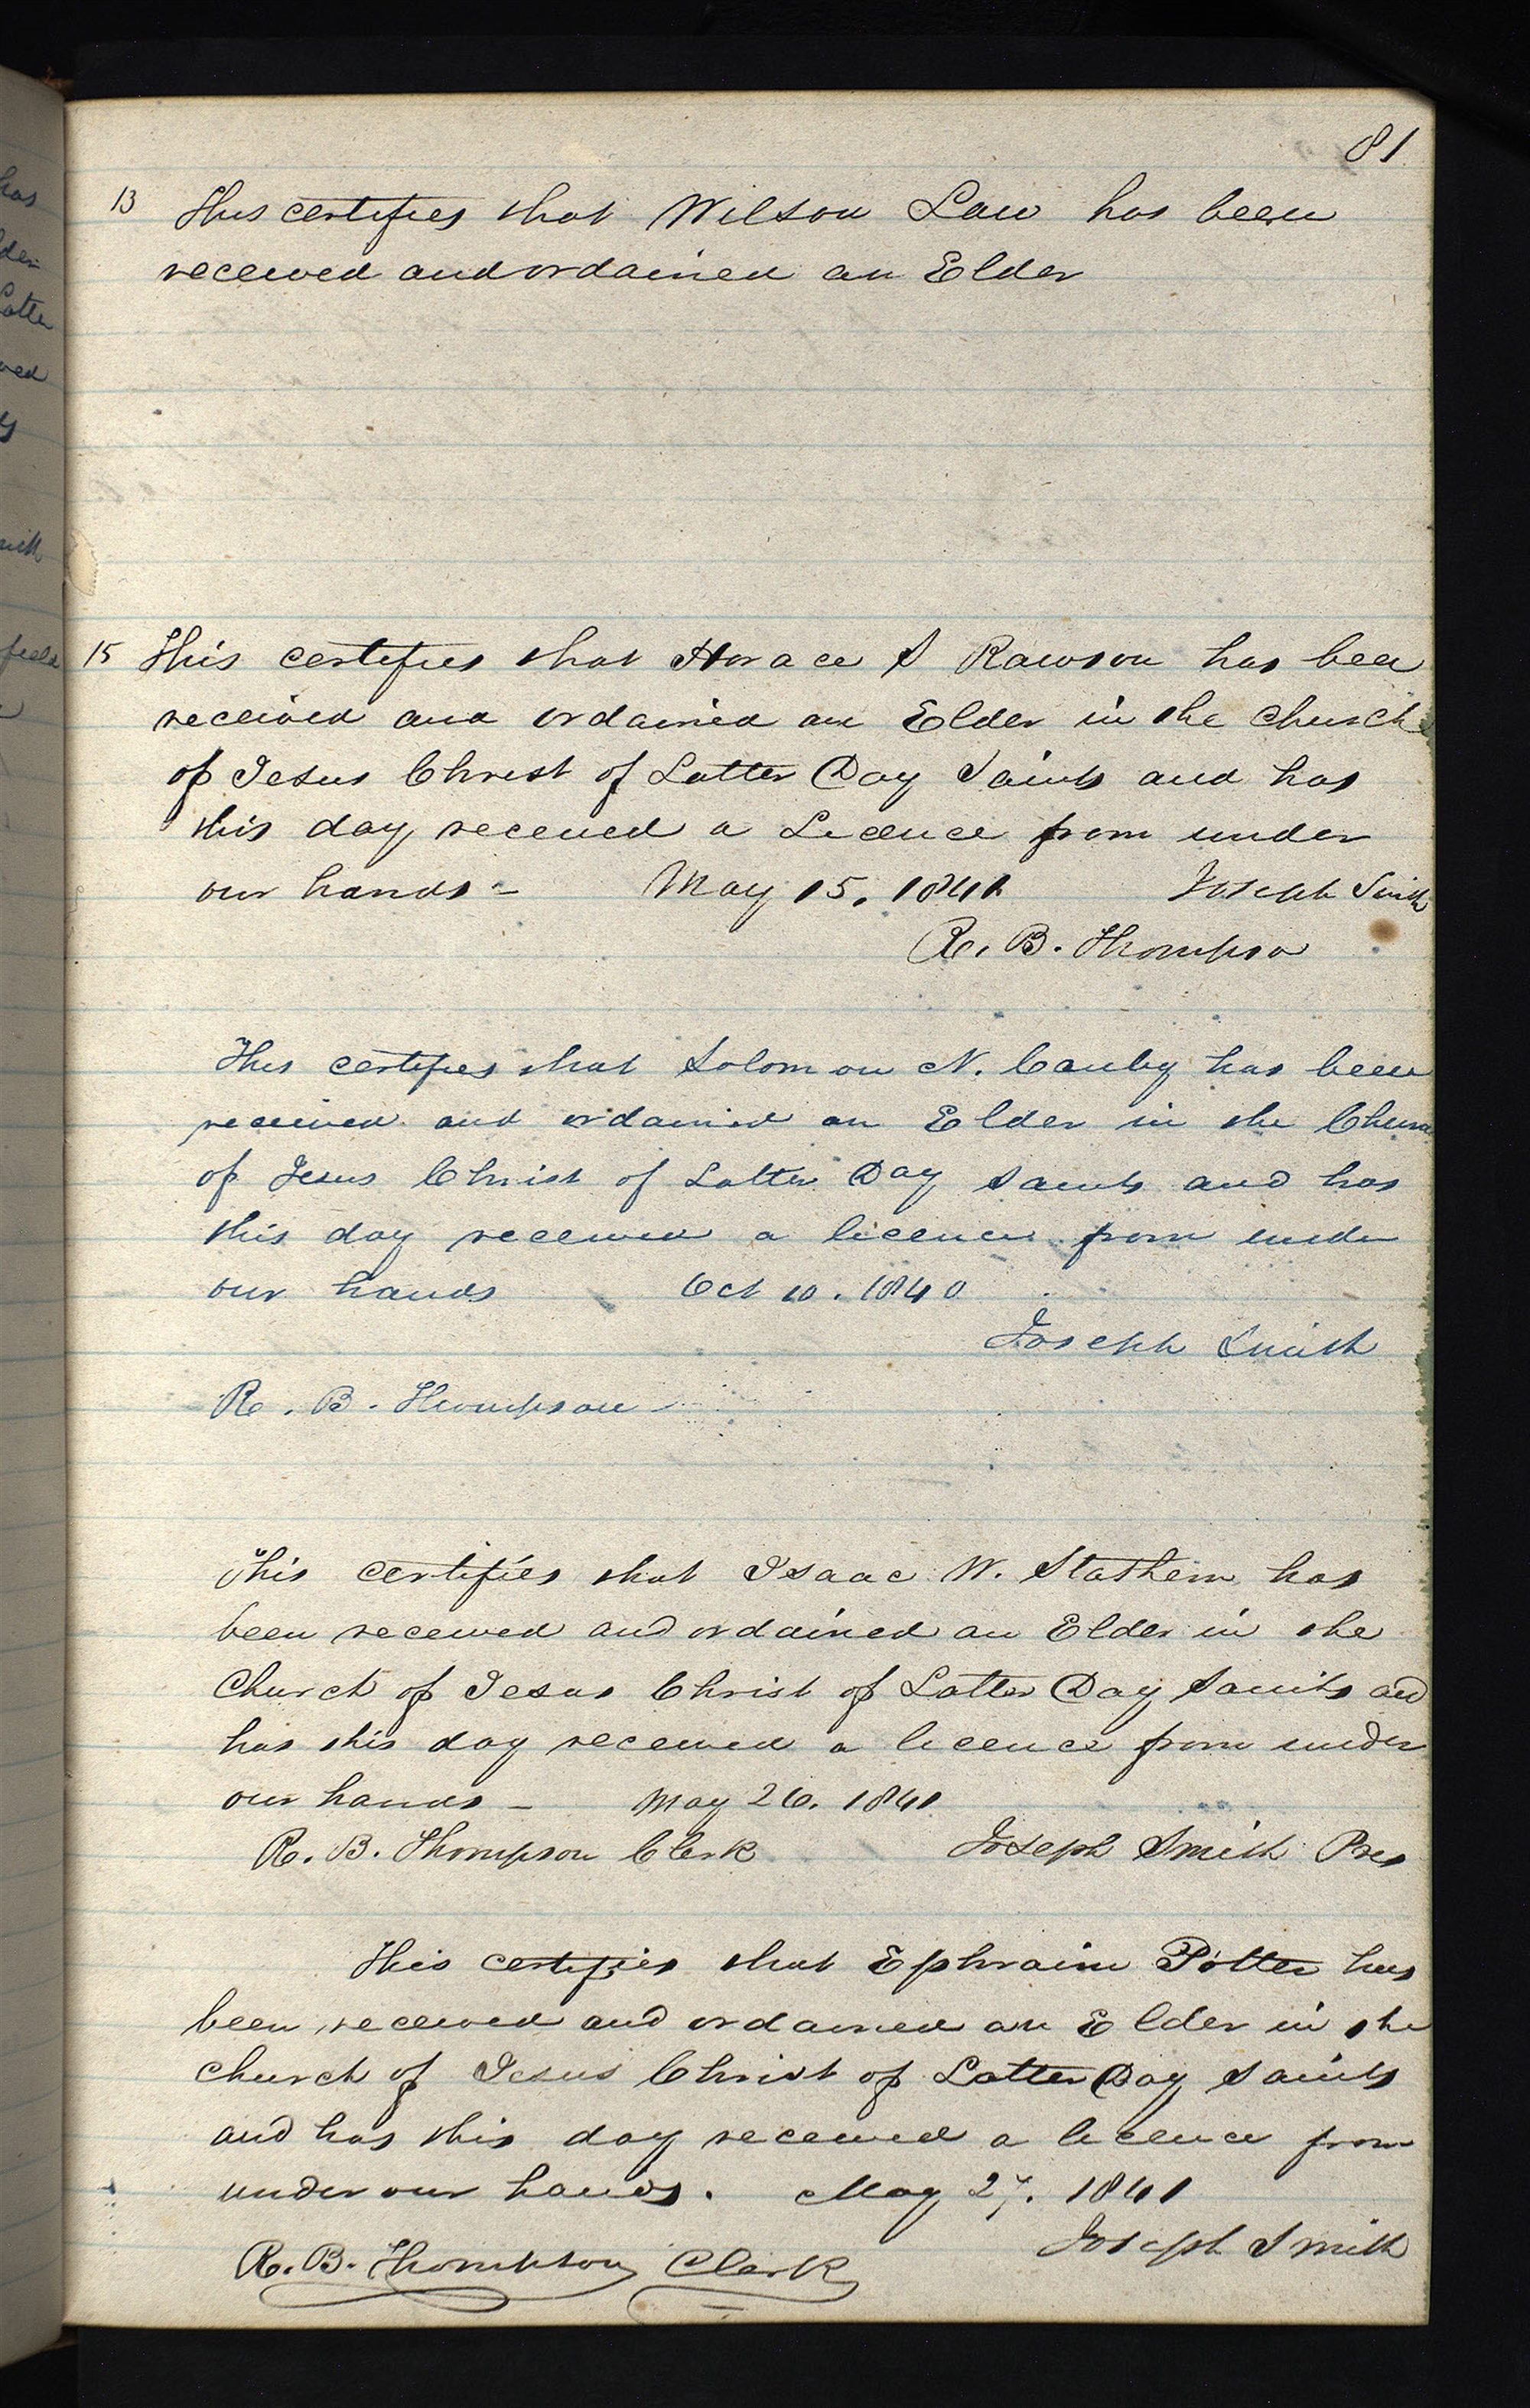 81
13 This certifies that Wilson Law has been
received and ordained an Elder
15 This certifies that Horace S Rawson has bee
received and ordained an Elder in the Church
of Jesus Christ of Latter Day Saints and has
this day received a Licence from under
our hands - May 15, 1841 Joseph Smith
R. B. Thompso
This certifies that Solomon N. Canby has been
received and ordained an Elder in the Churc
of Jesus Christ of Latter Day Saints and has
this day received a licence from under
our hands Oct 10. 1840
Joseph Smith
R. B. Thompson
This certifies that Isaac W. Stathem has
been received and ordained an Elder in the
Church of Jesus Christ of Latter Day Saints and
has this day received a licence from under
our hands - May 26. 1841
R. B. Thompson Clerk Joseph Smith Pres
This certifies that Ephraim Potter has
been received and ordained an Elder in the
church of Jesus Christ of Latter Day Saints
and has this day received a licence from
under our hands. May 27. 1841
Joseph Smith
R. B. Thompson Clerk